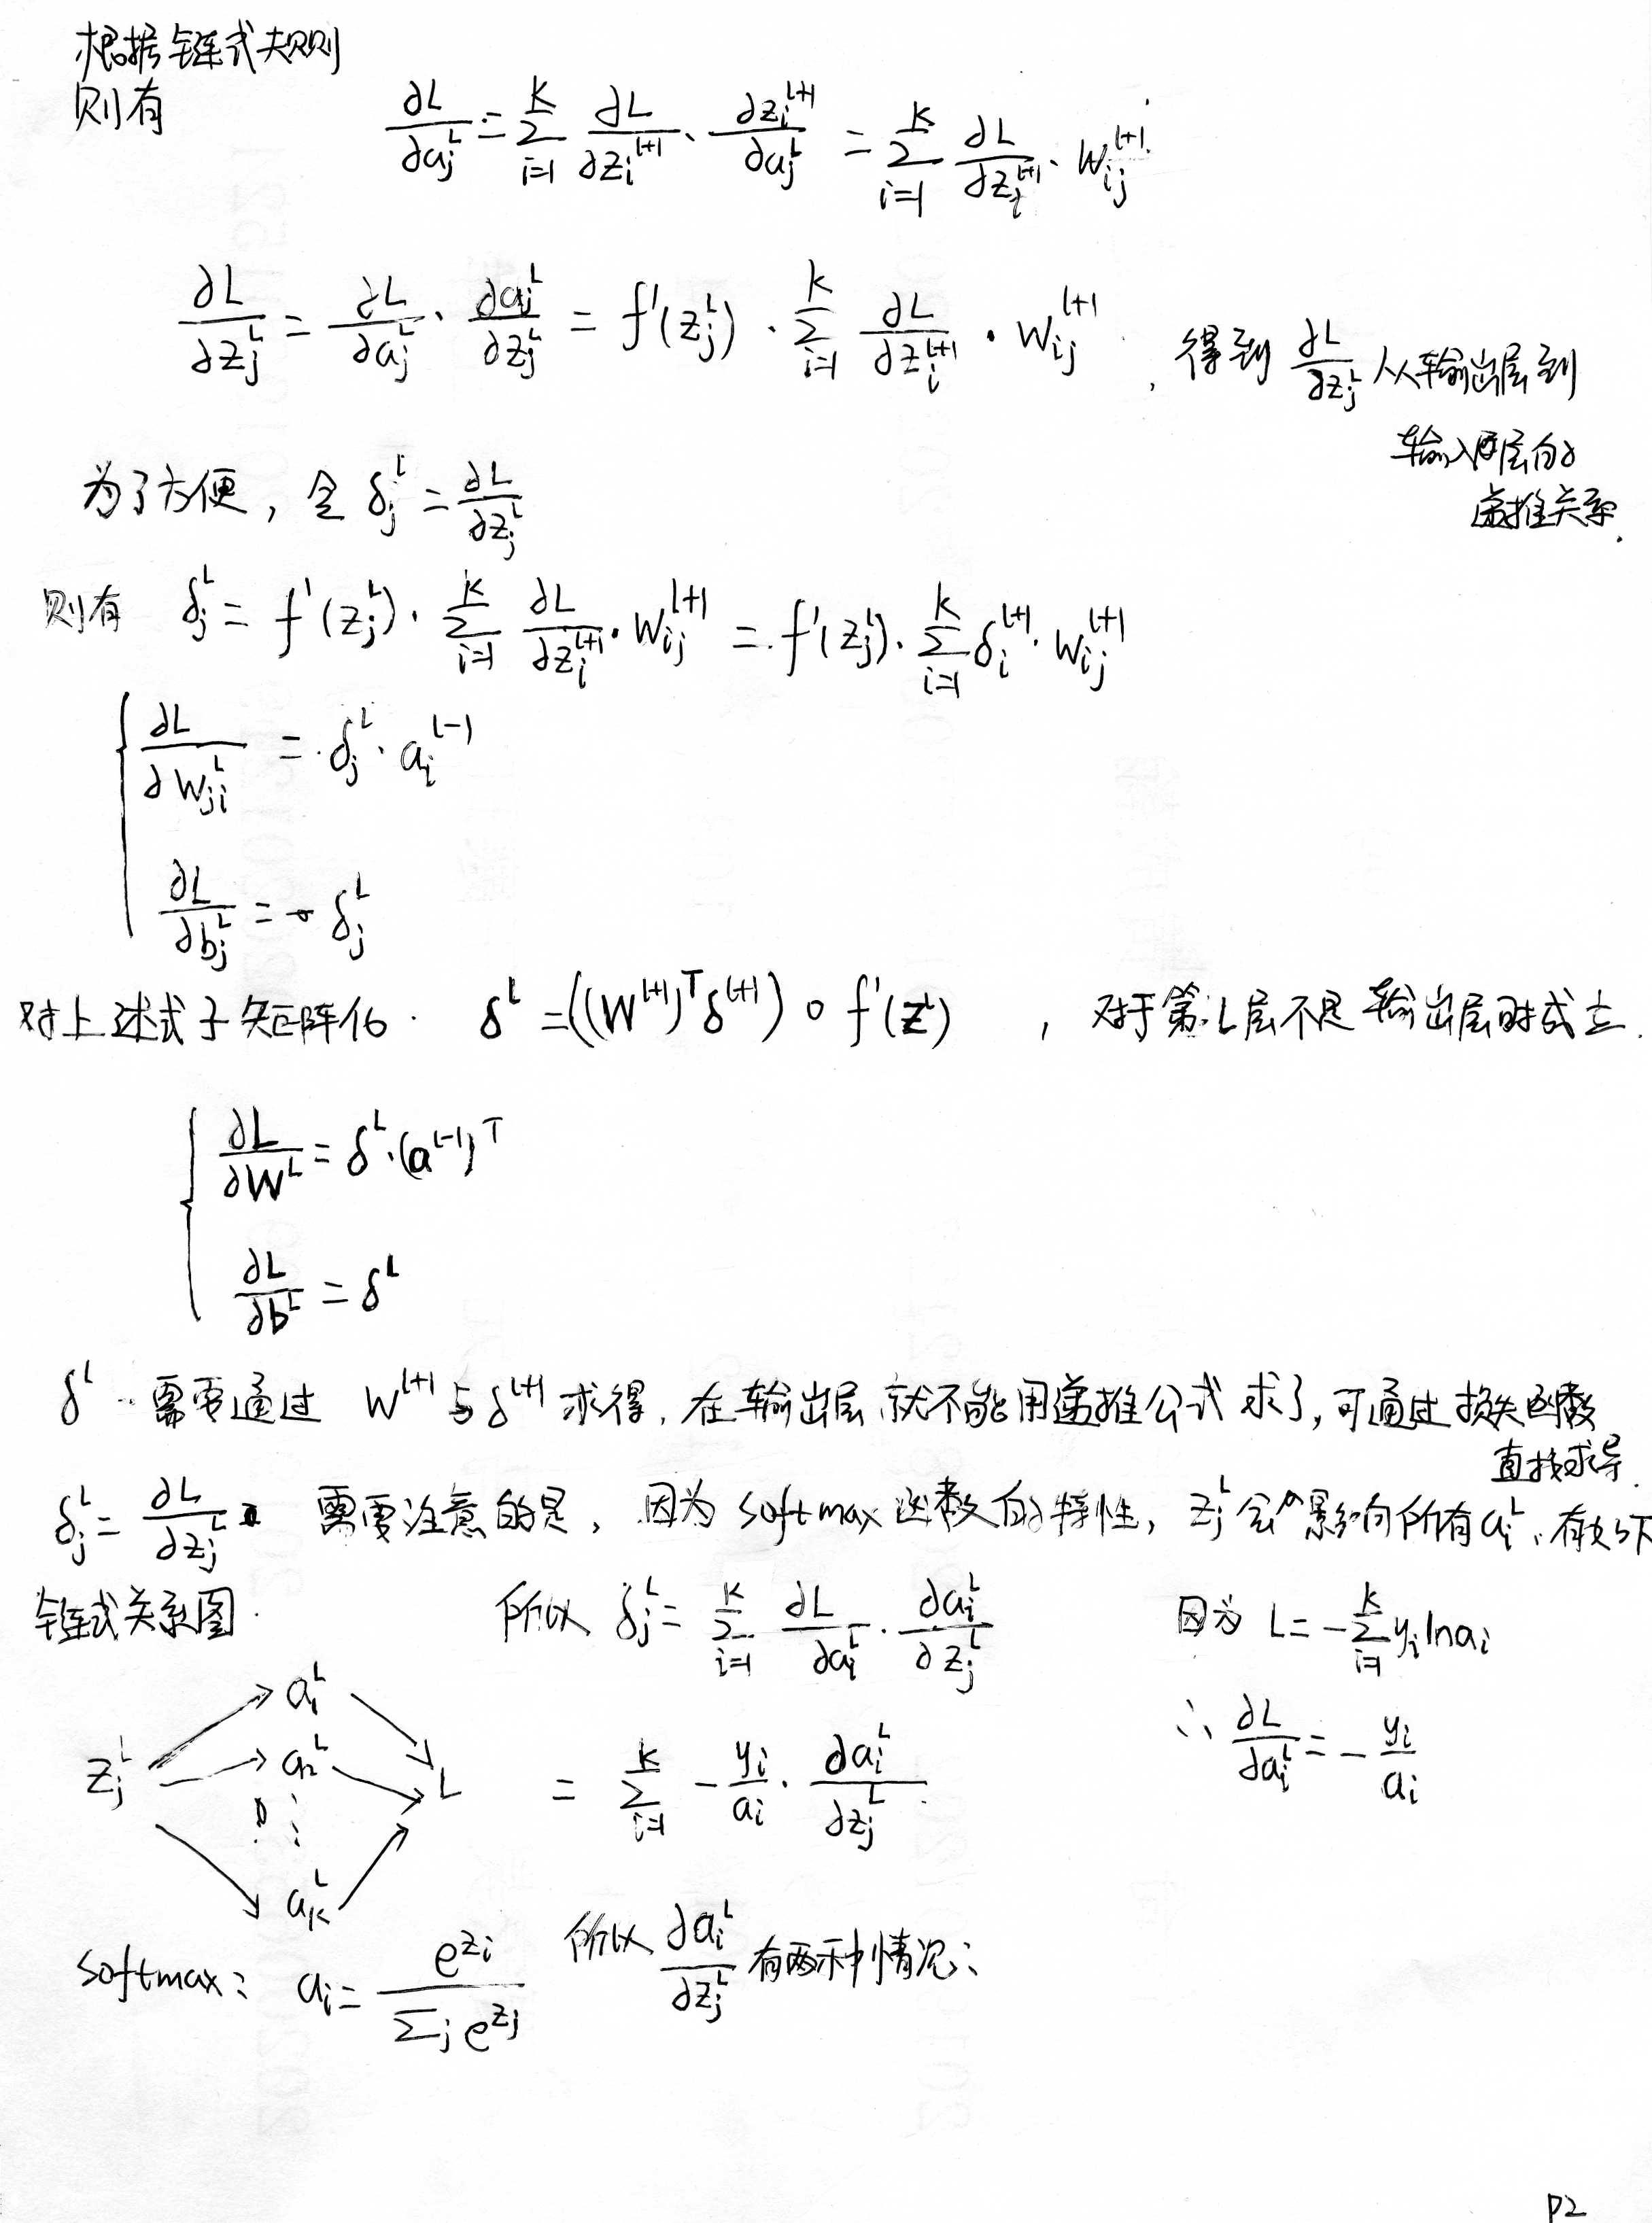 根据链式规则
则有
∂L/∂a_j^l = Σ_{i=1}^{K} ∂L/∂z_i^{l+1} · ∂z_i^{l+1}/∂a_j^l = Σ_{i=1}^{K} ∂L/∂z_i^{l+1} · W_{ij}^{l+1}
∂L/∂z_j^l = ∂L/∂a_j^l · ∂a_j^l/∂z_j^l = f'(z_j^l) · Σ_{i=1}^{K} ∂L/∂z_i^{l+1} · W_{ij}^{l+1} , 得到 ∂L/∂z_j^l 从输出层到
输入层的
递推关系.
为了方便, 令 δ_j^l = ∂L/∂z_j^l
则有 δ_j^l = f'(z_j^l) · Σ_{i=1}^{K} ∂L/∂z_i^{l+1} · W_{ij}^{l+1} = f'(z_j^l) · Σ_{i=1}^{K} δ_i^{l+1} · W_{ij}^{l+1}
∂L/∂W_{ji}^l = δ_j^l · a_i^{l-1}
∂L/∂b_j^l = δ_j^l
对上述式子矩阵化. δ^l = ((W^{l+1})^T δ^{l+1}) ∘ f'(z^l) , 对于第L层不是输出层时成立.
∂L/∂W^l = δ^l · (a^{l-1})^T
∂L/∂b^l = δ^l
δ^l 需要通过 W^{l+1} 与 δ^{l+1} 求得, 在输出层就不能用递推公式求了, 可通过损失函数
直接求导.
δ_j^L = ∂L/∂z_j^L 需要注意的是, 因为 softmax 函数的特性, z_j^L 会影响所有 a_i^L, 有如下
链式关系图.
所以 δ_j^L = Σ_{i=1}^{K} ∂L/∂a_i^L · ∂a_i^L/∂z_j^L
因为 L = -Σ_{i=1}^{K} y_i ln a_i
z_j^L
a_1^L
a_2^L
⋮
a_K^L
L
= Σ_{i=1}^{K} -y_i/a_i · ∂a_i^L/∂z_j^L
∴ ∂L/∂a_i^L = -y_i/a_i
softmax: a_i = e^{z_i}/Σ_j e^{z_j} 所以 ∂a_i^L/∂z_j^L 有两种情况:
P2